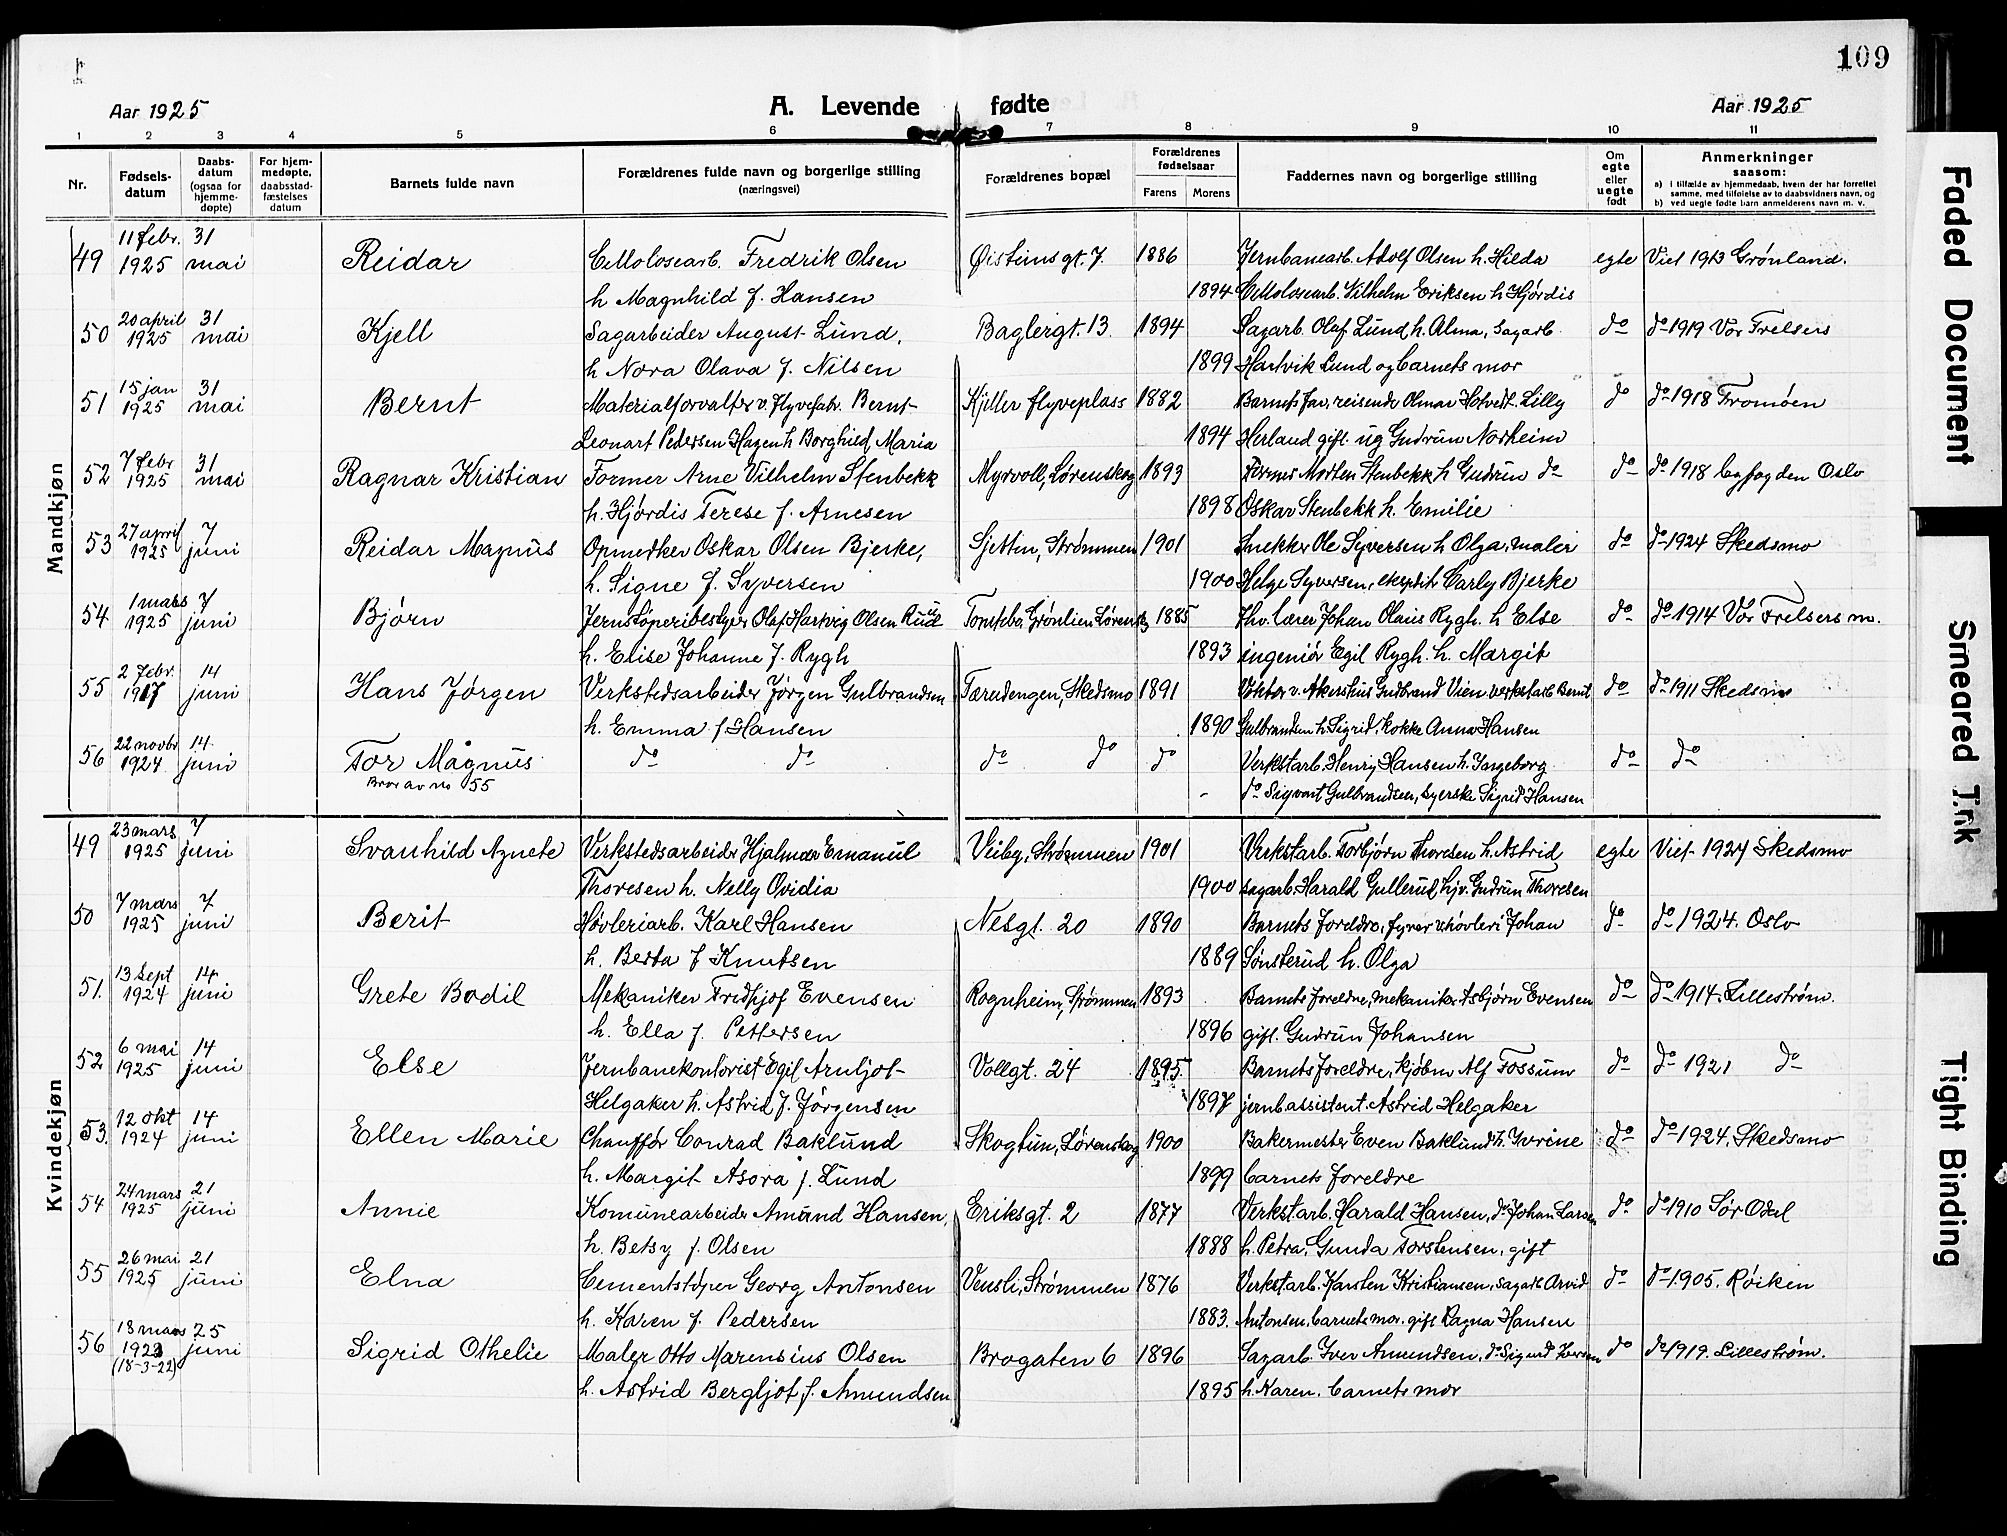 109
Aar 1925 A. Levende fødte Aar 1925
1 2 3 4 5 6 7 8 9 10 11
Nr. Fødsels-datum Daabs-datum (ogsaa for hjemme-døpte) For hjem-medøpte, daabsstad-fæstelses datum Barnets fulde navn Forældrenes fulde navn og borgerlige stilling (næringsvei) Forældrenes bopæl Forældrenes fødselsaar Farens Morens Faddernes navn og borgerlige stilling Om egte eller uegte født Anmerkninger saasom:
a) i tilfælde av hjemmedaab, hvem der har forrettet samme, med tilføielse av to daabsvidners navn, og
b) ved uegte fødte barn anmelderens navn m. v.
Mandkjøn
49 11 febr. 1925 31 mai Reidar Cellolosearb. Fredrik Olsen Øisteinsgt. 7 1886 Jernbanearb. Adolf Olsen h. Hilda egte Viet 1913 Grønland.
h Magnhild f. Hansen 1894 Cellolosearb. Vilhelm Eriksen h Hjørdis
50 20 april 1925 31 mai Kjell Sagarbeider August Lund, Baglergt. 13. 1894 Sagarb. Olaf Lund h. Alma, Sagarb. do do 1919 Vor Frelsers
h Nora Olava f. Nilsen 1899 Hartvik Lund og barnets mor
51 15 jan 1925 31 mai Bernt Materialforvalter v. Flyvefabr. Bernt Kjeller flyveplass 1882 Barnets far, reisende Olmar Hotvedt. Lilly do do 1918 Tromøen
Leonart Pedersen Hagen h Borghild Maria 1894 Herland gift. ug Gudrun Norheim
52 7 febr 1925 31 mai Ragnar Kristian Former Arne Vilhelm Stenbekk Myrvoll, Lørenskog 1893 Former Morten Stenbekk h Gudrun do do do 1918 byfogden Oslo
h. Hjørdis Terese f. Arnesen 1898 Oskar Stenbekk h. Emilie
53 27 april 1925 7 juni Reidar Magnus Opmerker Oskar Olsen Bjerke, Sjetten, Strømmen 1901 Snekker Ole Syversen h Olga, maler do do 1924 Skedsmo
h. Signe f. Syversen 1900 Helge Syversen, ekspedit. Carly Bjerke
54 1 mars 1925 7 juni Bjørn Jernstøperibestyrer Olaf Hartvig Olsen Ruud Grønlien Lørensk 1885 Johan Olaus Rygh. h Else do do 1914 Vor Frelsers m.
h. Elise Johanne f. Rygh 1893 ingeniør Egil Rygh. h. Margit
55 2 febr. 1917 14 juni Hans Jørgen Verkstedsarbeider Jørgen Gulbrandsen Tærudengen, Skedsmo 1891 Vokter v. Akershus Gudbrand Vien verkstarb Bernt do do 1911 Skedsmo
h. Emma f Hansen 1890 Gulbrandsen h. Sigrid, kokke Anna Hansen
56 22 novbr 1924 14 juni Tor Magnus do do do do do Verkstarb. Henry Hansen h. Ingeborg do do
Bror av no 55 do Sigvart Gulbrandsen, syerske Sigrid Hansen
Kvindekjøn
49 23 mars 1925 7 juni Svanhild Agnete Verkstedsarbeider Hjalmar Emanuel Veiby, Strømmen 1901 Verkstarb. Torbjørn Thoresen h. Astrid egte Viet 1924 Skedsmo
Thoresen h. Nelly Ovidia 1900 sagarb. Harald Gullerud hjv. Gudrun Thoresen
50 7 mars 1925 7 juni Berit Høvleriarb. Karl Hansen Nesgt. 20 1890 Barnets foreldre, fyrer v. høvleri Johan do do 1924. Oslo
h. Berta f Knutsen 1889 Sønsterud h. Olga
51. 13 Sept 1924 14 juni Grete Bodil Mekaniker Fridtjof Evensen Rognheim, Strømmen 1893 Barnets foreldre, mekaniker Asbjørn Evensen do do 1914. Lillestrøm.
h. Ella f. Pettersen 1896 gift. Gudrun Johansen
52 6 mai 1925 14 juni Else Jernbanekontorist Egil Arnljot Vollgt. 24 1895 Barnets foreldre, kjøbm Alf Fossum do do 1921 do
Helgaker h. Astrid f. Jørgensen 1897 jernb assistent Astrid Helgaker
53. 12 okt 1924 14 juni Ellen Marie Chauffør Conrad Baklund Skogtun, Lørenskog 1900 Bakermester Even Baklund h. Yvrine do do 1924. Skedsmo
h. Margit Asora f. Lund 1899 barnets foreldre
54 24 mars 1925 21 juni Annie Komunearbeider Amund Hansen, Eriksgt. 2 1877 Verkstarb. Harald Hansen, do Johan Larsen do do 1910 Sør Odal
h. Betsy f. Olsen 1888 h. Petra, Gunda Torstensen, gift
55 26 mai 1925 21 juni Elna Cementstøper Georg Antonsen Vensli, Strømmen 1876 Verkstarb. Karsten Kristiansen, Sagarb Arvid do do 1905. Røiken
h. Karen f. Pedersen 1883. Antonsen, barnets mor. gift Ragna Hansen
56 18 mars 1923 (18-3-22) 25 juni Sigrid Othelie Maler Otto Marensius Olsen Brogaten 6 1896 Sagarb. Iver Amundsen, do Sigurd Iversen do do 1919. Lillestrøm.
h. Astrid Bergljot f. Amundsen 1895 h. Karen. barnets mor
Faded Document
Smeared Ink
Tight Binding